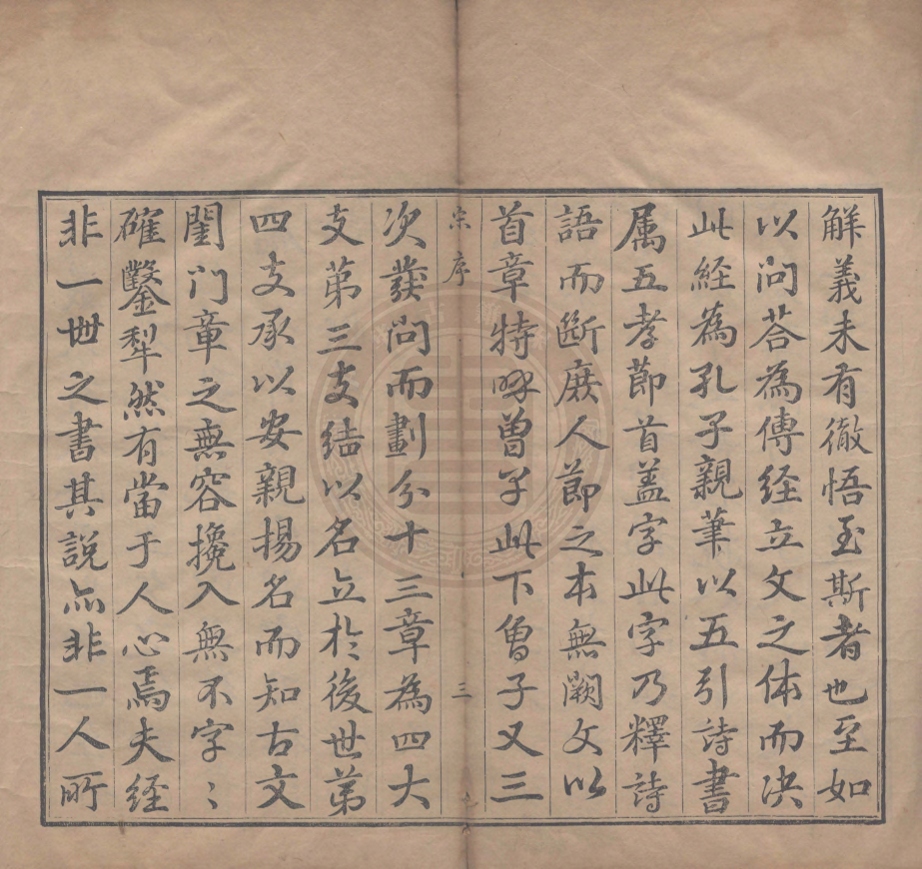 解義未有徹悟至斯者也至如
以问荅為傳经立文之体而决
此経為孔子親筆以五引詩書
属五孝節首盖字此字乃釋詩
語而斷庻人節之本無闕文以
首章特呼曾子此下曾子又三
宗序
三
次發问而劃分十三章為四大
支第三支结以名立於後世第
四支承以安親揚名而知古文
閨门章之無容攙入無不字〻
確鑿犁然有當于人心焉夫経
非一世之書其說亦非一人所